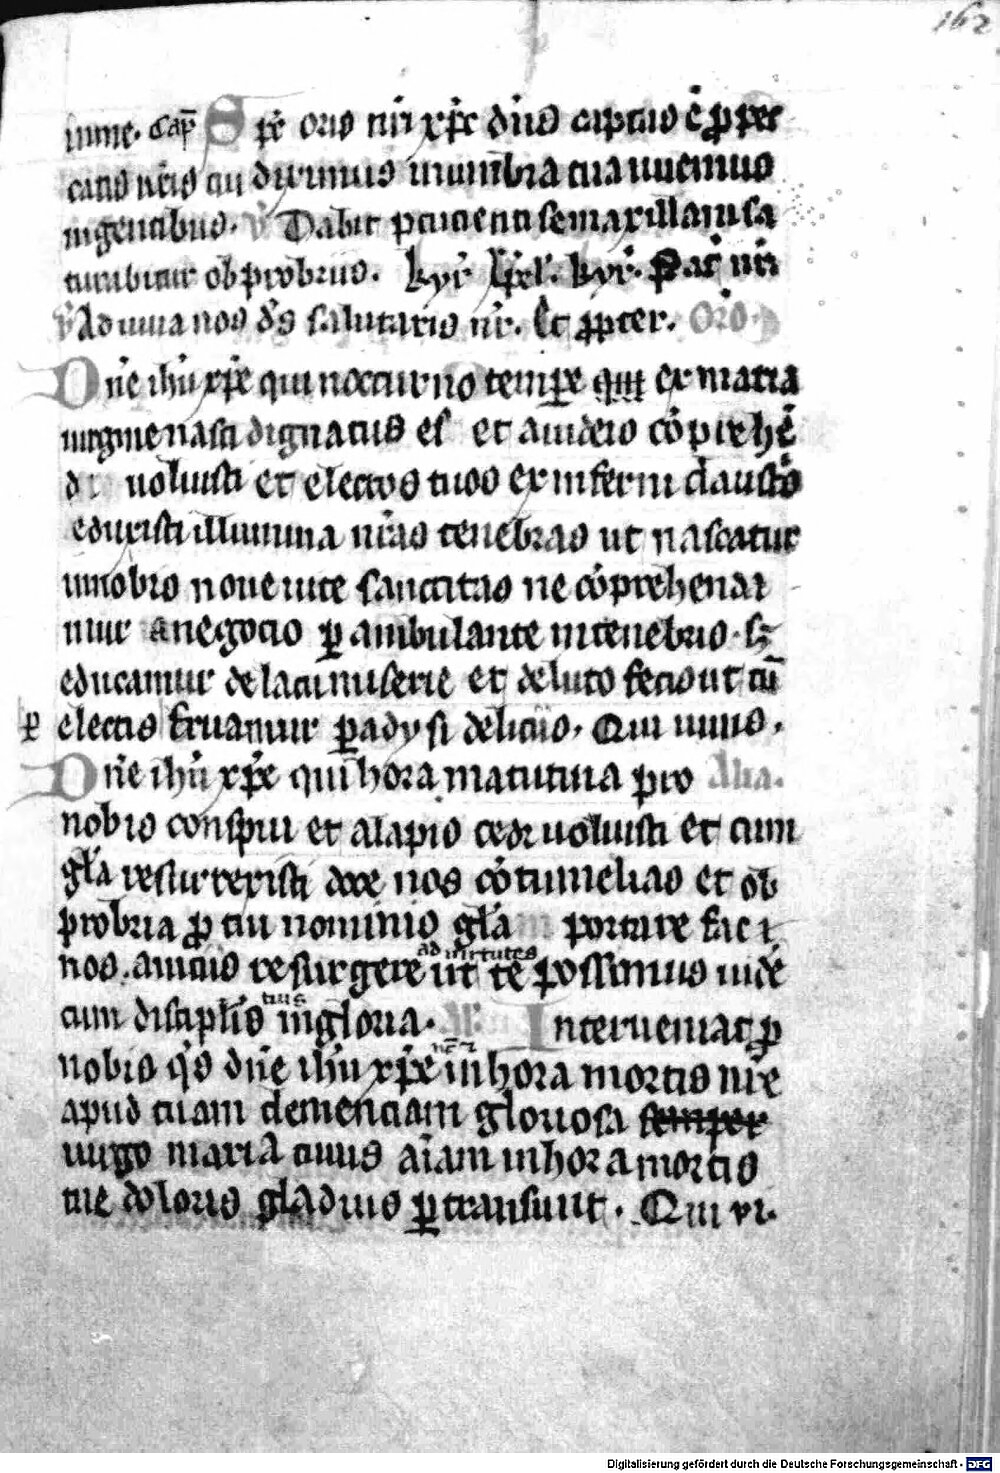 162
inme. Cap̄ Sp̄c oris nr̄i xp̄c dn̄s captus ē ꝓ pec
catis nr̄is cui diximus in umbra tua uiuemus
in gentibus. V Dabit percucienti se maxillam sa
turabitur obprobriis. kyr̄ xp̄el. kyr̄. Pat̄ nr̄
V Adiuua nos ds̄ salutaris nr̄. Et ꝓpter. Or̄o.
Dn̄e ihū xp̄e qui nocturno tempꝛe ex maria
uirgine nasci dignatus es et a iudeis cōprehē
di uoluisti et electos tuos ex inferni claustꝛo
eduxisti illumina nr̄as tenebras ut nascatur
in nobis noue uite sanctitas ne cōprehenda
mur a negocio ꝑambulante in tenebris. sꝫ
educamur de lacu miserie et de luto fecis ut cū
electis fruamur ꝑadysi deliciis. Qui uiuis.
Dn̄e ihū xp̄e qui hora matutina pro Alia.
nobis conspui et alapis cedi uoluisti et cum
glā resurrexisti doce nos cōtumelias et ob
probria ꝓ tui nominis glā portare fac
nos. amicus resurgere ad virtutes ut te possimus uide
cum disciplis tuis in gloria. Interueniat ꝓ
nobis qs̄ dn̄e ihū xp̄e in hora mortis nr̄e
apud tuam clemenciam gloriosa semper
uirgo maria cuius aīam in hora mortis
tue doloris gladius ꝑtransiuit. Qui vi.
Digitalisierung gefördert durch die Deutsche Forschungsgemeinschaft - DFG